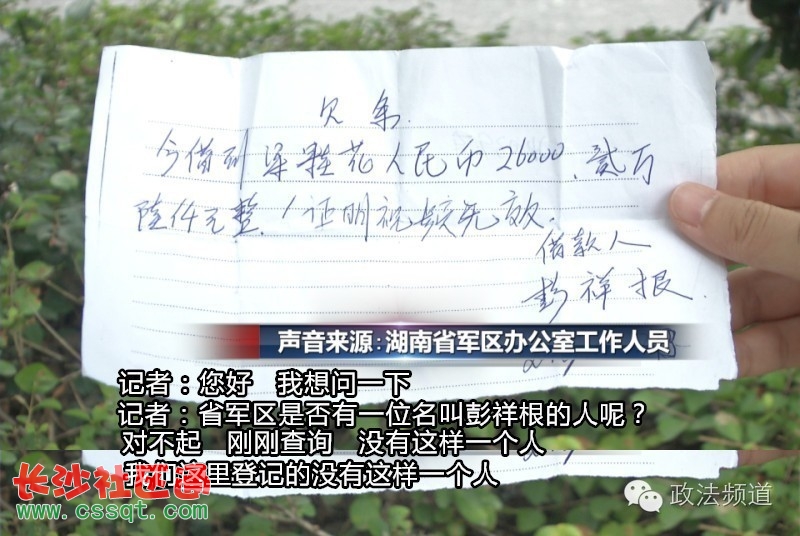 欠条.
今借到梁桂花人民币26000、贰万
陆仟元整、/证明视频无效.
借款人
彭祥根.
声音来源:湖南省军区办公室工作人员
记者：您好 我想问一下
记者：省军区是否有一位名叫彭祥根的人呢？
对不起 刚刚查询 没有这样一个人
我们这里登记的没有这样一个人
长沙社区通
www.cssqt.com
政法频道